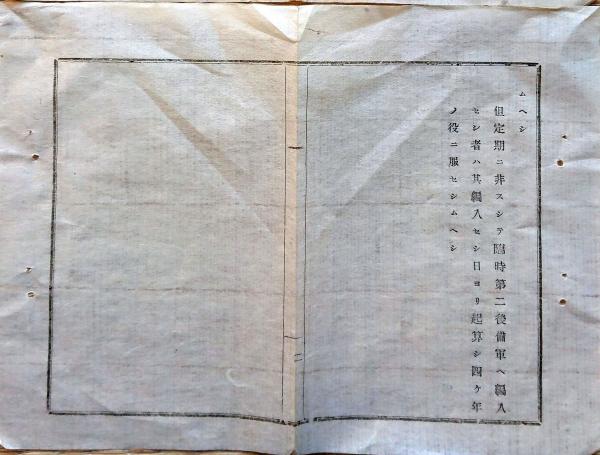 ムヘシ
但定期ニ非スシテ臨時第二後備軍ヘ編入
セシ者ハ其編入セシ日ヨリ起算シ四ケ年
ノ役ニ服セシムヘシ